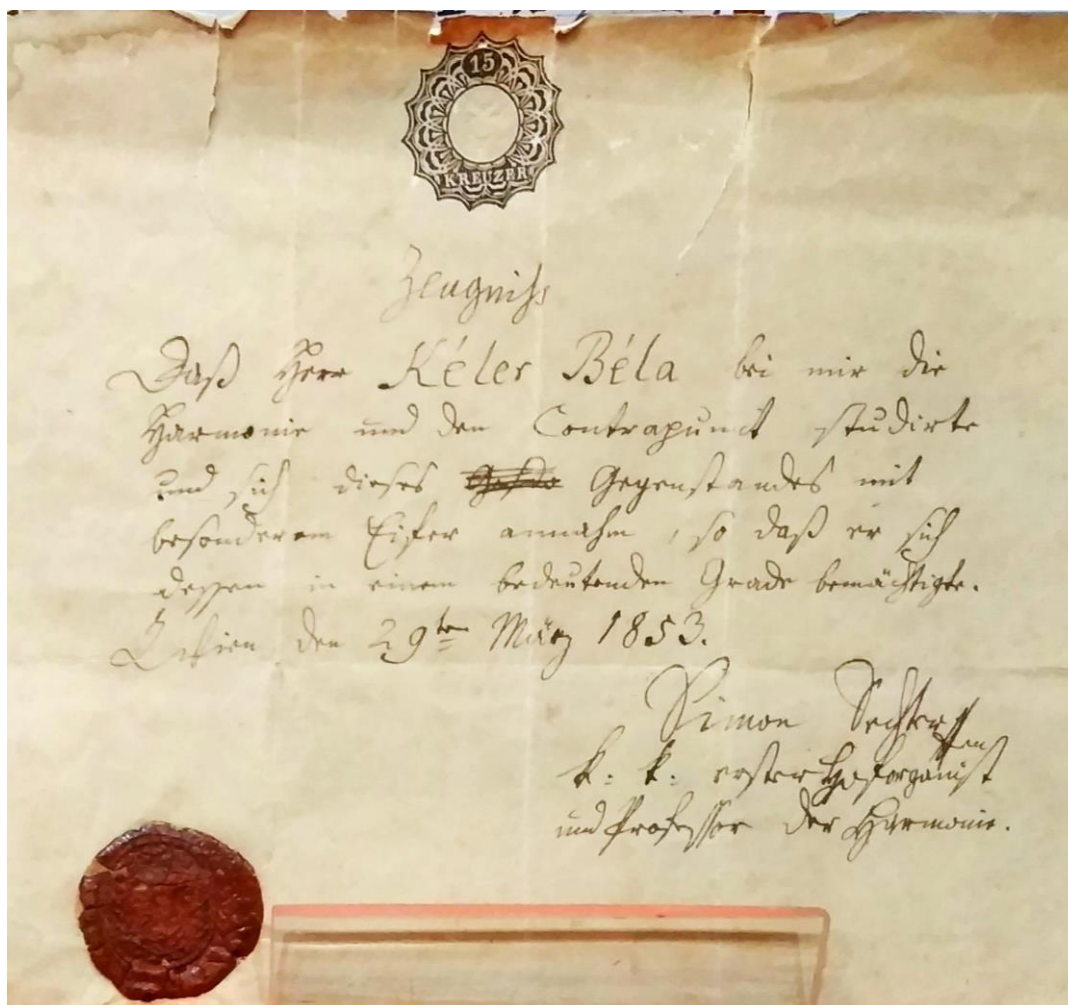 15
KREUZER
Zeugniß
Daß Herr Kéler Béla bei mir die
Harmonie und den Contrapunct studirte
und sich dieses Gegenstandes mit
besonderem Eifer annahm, so daß er sich
dessen in einem bedeutenden Grade bemächtigte.
Wien den 29ten März 1853.
Simon Sechter
k: k: erster Hoforganist
und Professor der Harmonie.